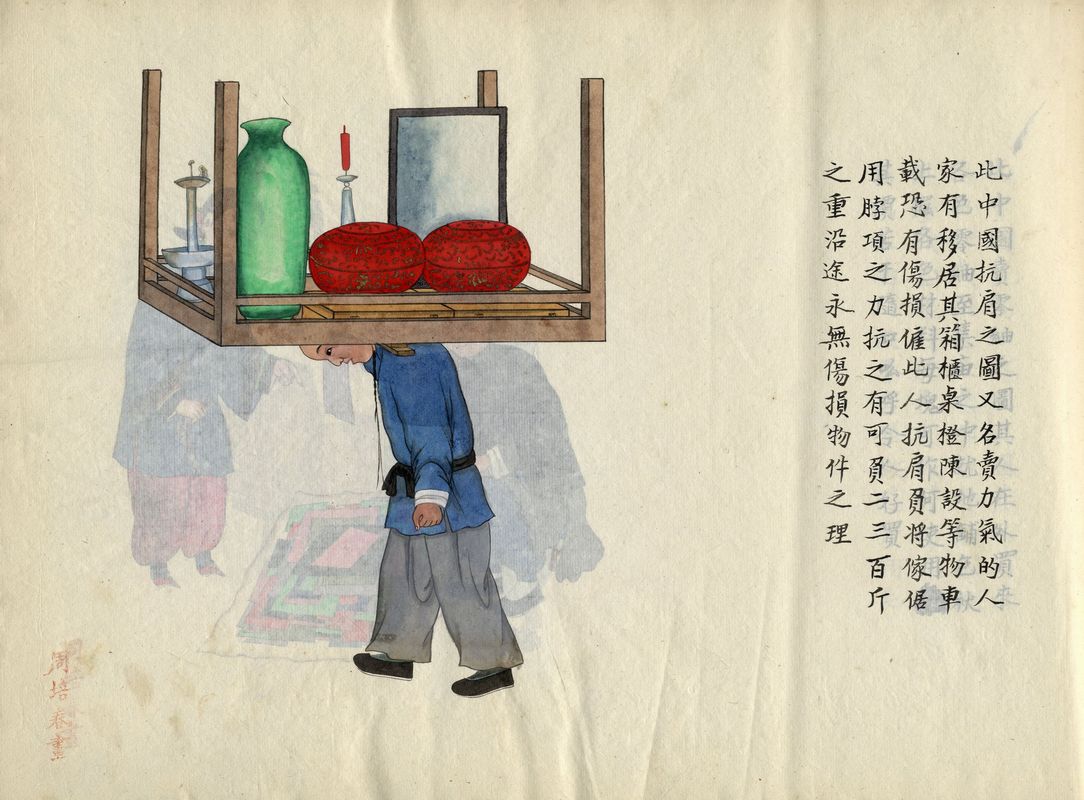 此中國抗肩之圖又名賣力氣的人
家有移居其箱櫃桌櫈陳設等物車
載恐有傷損僱此人抗肩負將傢倨
用脖項之力抗之有可負二三百斤
之重沿途永無傷損物件之理
周培春畫